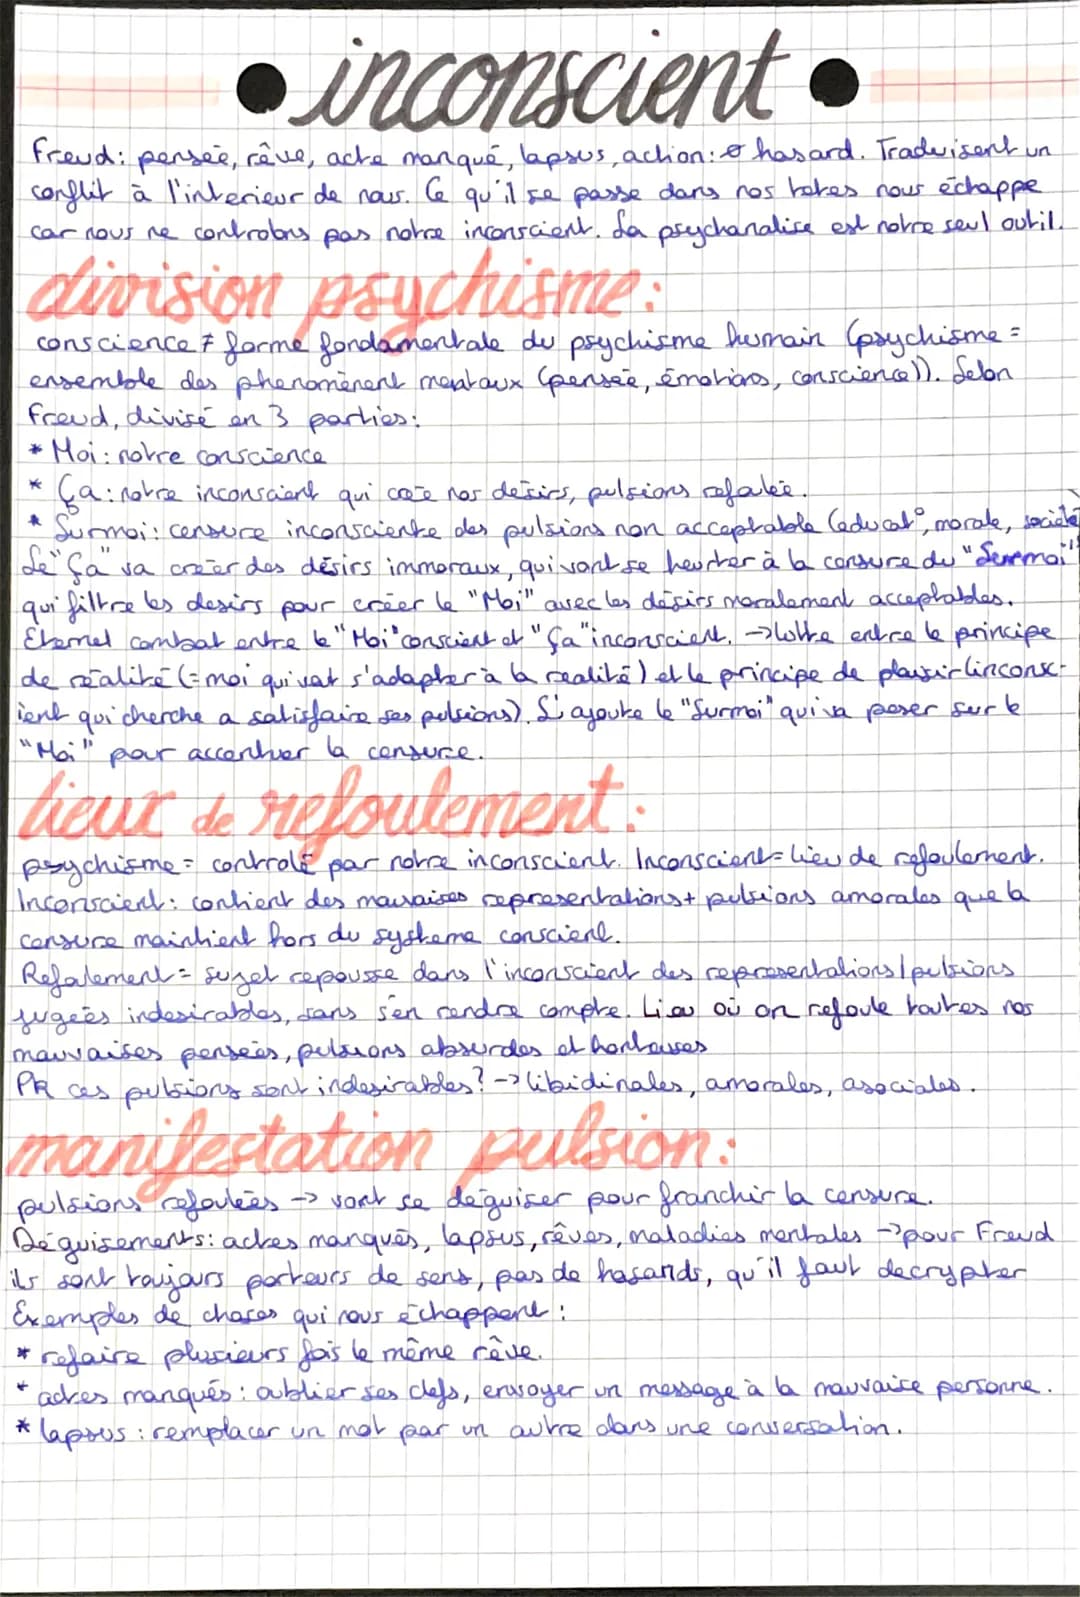 inconscient
Freud: pensée, rêve, acte manqué, lapsus, action: ø hasard. Traduisent un
conflit à l'interieur de nous. Ce qu'il se passe dans nos tetes nous échappe
car nous ne controlons pas notre inconscient. La psychanalise est notre seul outil.
division psychisme:
conscience ≠ forme fondamentale du psychisme humain (psychisme =
ensemble des phenomènent mentaux (pensée, émotions, conscience)). Selon
Freud, divisé en 3 parties:
* Moi: notre conscience
* Ça: notre inconscient qui crée nos désirs, pulsions refoulée.
* Surmoi: censure inconsciente des pulsions non acceptable (educat°, morale, société
Le "Ça" va créer des désirs immoraux, qui vont se heurter à la censure du "Surmoi"
qui filtre les desirs pour créer le "Moi" avec les désirs moralement acceptables.
Eternel combat entre le "Moi" conscient et "Ça" inconscient. → lutte entre le principe
de réalité (= moi qui vat s'adapter à la realité) et le principe de plaisir (inconsc-
ient qui cherche a satisfaire ses pulsions). S'ajoute le "Surmoi" qui va peser sur le
"Moi" pour accentuer la censure.
lieux de refoulement:
psychisme = controlé par notre inconscient. Inconscient = lieu de refoulement.
Inconscient: contient des mauvaises representations + pulsions amorales que la
censure maintient hors du systeme conscient.
Refoulement = sujet repousse dans l'inconscient des representations/pulsions
jugées indesirables, sans s'en rendre compte. Lieu où on refoule toutes nos
mauvaises pensées, pulsions absurdes et honteuses
PR ces pulsions sont indesirables? → libidinales, amorales, asociales.
manifestation pulsion:
pulsions refoulées → vont se déguiser pour franchir la censure.
Déguisements: actes manqués, lapsus, rêves, maladies mentales → pour Freud
ils sont toujours porteurs de sens, pas de hasards, qu'il faut decrypter
Exemples de choses qui nous échappent:
* refaire plusieurs fois le même rêve.
* actes manqués: oublier ses clefs, envoyer un message à la mauvaise personne.
* lapsus: remplacer un mot par un autre dans une conversation.